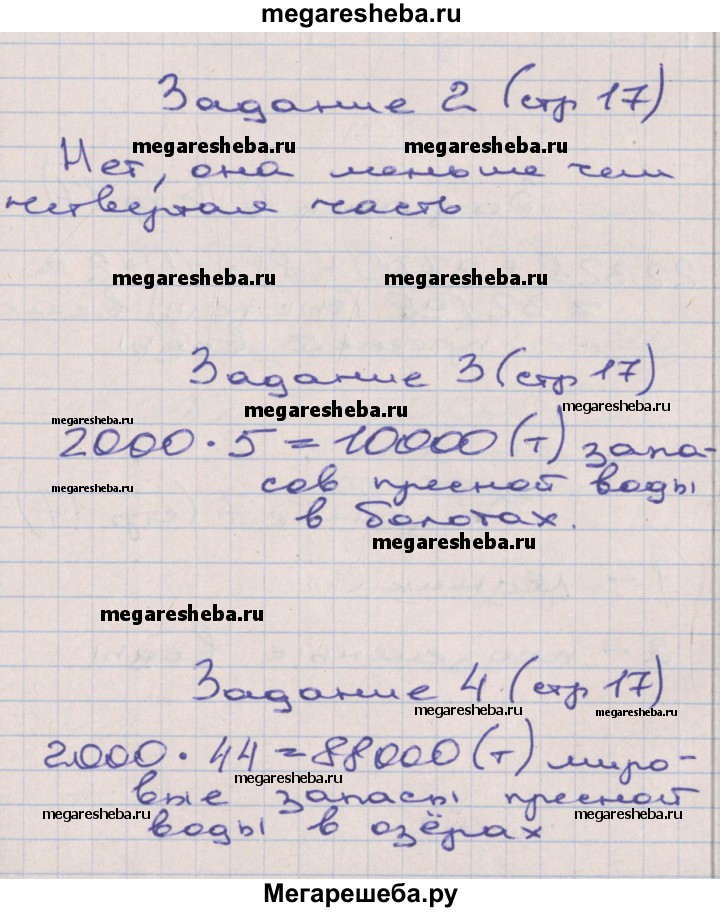 megaresheba.ru
Задание 2 (стр 17)
megaresheba.ru megaresheba.ru
Нет, она меньше чем
четвертая часть
megaresheba.ru megaresheba.ru
Задание 3 (стр 17)
megaresheba.ru megaresheba.ru megaresheba.ru
2000 · 5 = 10000 (т) запа-
megaresheba.ru
сов пресной воды
в болотах.
megaresheba.ru
megaresheba.ru
Задание 4 (стр 17)
megaresheba.ru megaresheba.ru
2000 · 44 = 88000 (т) миро-
megaresheba.ru
вые запасы пресной
megaresheba.ru megaresheba.ru
воды в озёрах
Мегарешеба.ру